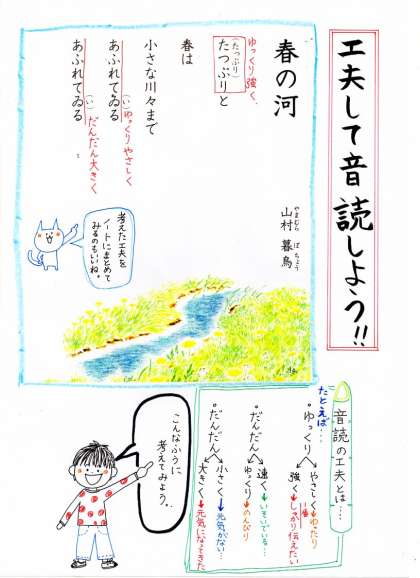 工夫して音読しよう!!
春の河
山村 暮鳥
やまむら ぼちょう
ゆっくり強く、
(たっぷり)
たつぷりと
春は
小さな川々まで
あふれてゐる
(い)
ゆっくりやさしく
あふれてゐる
(い)
だんだん大きく
考えた工夫を
ノートにまとめて
みるのもいいね。
音読の工夫とは…
たとえば…
ゆっくり
やさしく→ゆったり
強く→しっかり伝えたい
だんだん
速く→いそいでいる…
ゆっくり→のんびり
だんだん
小さく→元気がない…
大きく→元気になってきた
こんなふうに
考えてみよう。